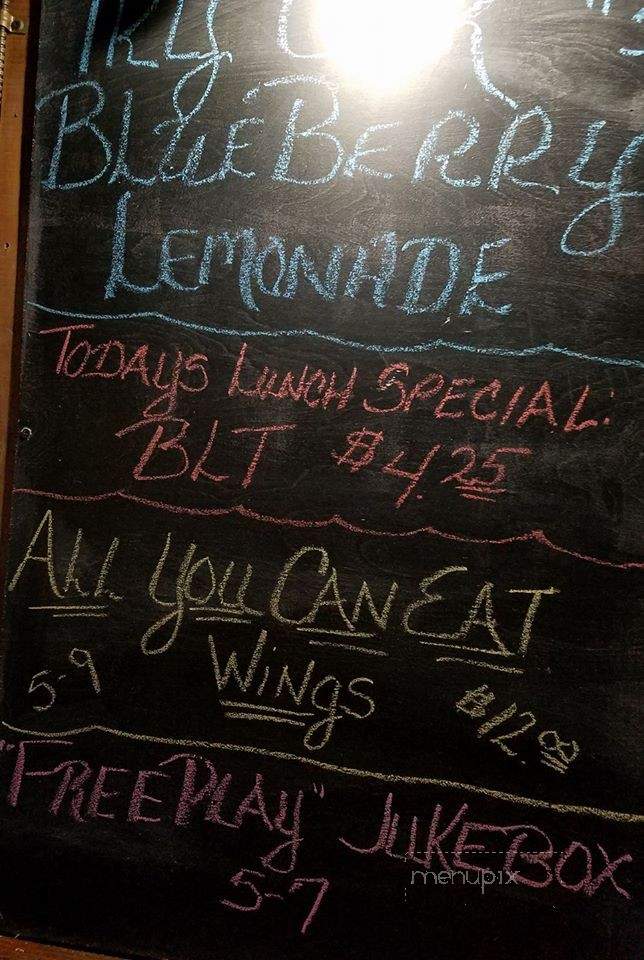 TRY OUR
BLUEBERRY
LEMONADE
TODAYS LUNCH SPECIAL:
BLT $4.25
ALL YOU CAN EAT
5-9 WINGS $12.00
"FREE PLAY" JUKEBOX
5-7
menupix